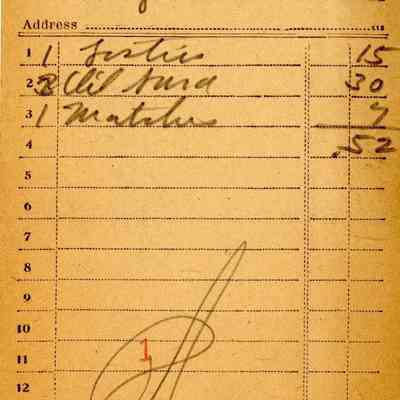 Address
1 1 15
2 3 30
3 1 Matches 7
4 .52
5
6
7
8
9
10
11 1
12